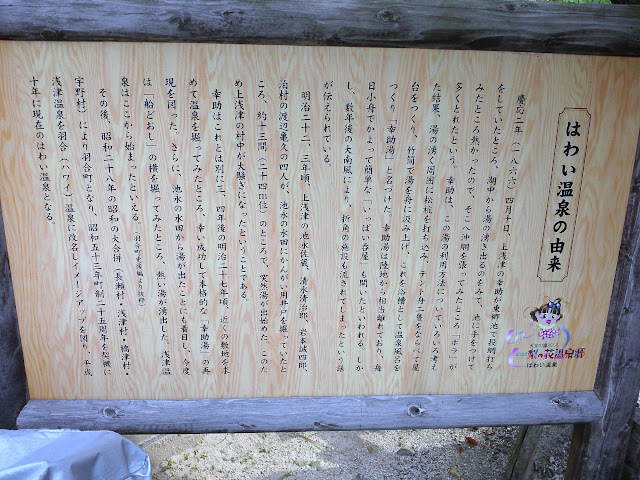 はわい温泉の由来
慶応二年(一八六六)四月十日、上浅津の幸助が東郷池で長網打ち
をしていたところ、湖中から湯の湧き出るのをみて、池に手をつけて
みたところ熱かったので、そこへ沖網を張ってみたところ「ボラ」が
多くとれたという。幸助は、この湯の利用方法についていろいろ考え
た結果、湯の湧く周囲に松杭を打ち込み、テント舟二隻をならべて屋
台をつくり、竹筒で湯を舟に汲み上げ、これを浴槽として温泉風呂を
つくり「幸助湯」と名づけた。幸助湯は陸地から相当離れており、舟
日小舟でかよって簡単な「いっぱい呑屋」も開いたといわれる。しか
し、数年後の大南風により、折角の施設も流されてしまったという話
が伝えられている。
明治二十二、三年頃、上浅津の池永佐蔵、清水清治郎、岩本誠四郎、
泊村の渡辺亀久の四人が、池永の水田にかんがい用井戸を掘っていたと
ころ、約十三間(二十四m位)のところで、突然湯が出始めた。このた
め上浅津の村中が大騒ぎになったということである。
幸助はこれとは別に三、四年後の明治二十七年頃、近くの敷地を求
めて温泉を掘ってみたところ、幸い成功して本格的な「幸助湯」の再
現を図った。さらに、池永の水田から湯が出たことにも着目し、今度
は「船どおし」の横を掘ってみたところ、熱い湯が湧出した。浅津温
泉はここから始まったといえる。(羽合町史後編より抜粋)
その後、昭和二十八年の昭和の大合併(長瀬村・浅津村・橋津村・
宇野村)により羽合町となり、昭和五十三年町制二十五周年を契機に
浅津温泉を羽合(ハワイ)温泉に改名しイメージアップを図り、平成
十年に現在のはわい温泉となる。
梨の花温泉郷
はわい温泉